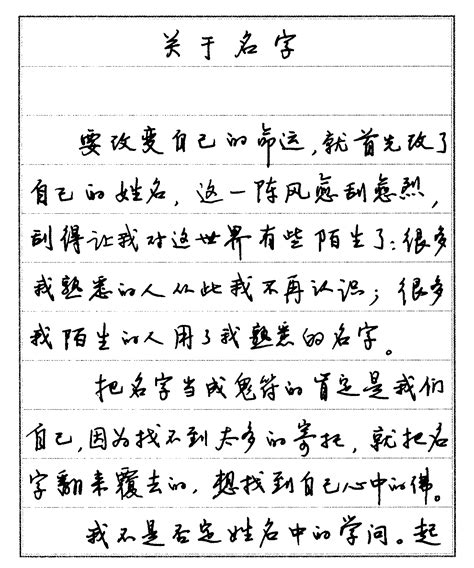 关于名字
要改变自己的命运，就首先改了
自己的姓名，这一阵风愈刮愈烈，
刮得让我对这世界有些陌生了：很多
我熟悉的人从此我不再认识；很多
我陌生的人用了我熟悉的名字。
把名字当成鬼符的肯定是我们
自己，因为找不到太多的寄托，就把名
字翻来覆去的，想找到自己心中的佛。
我不是否定姓名中的学问。起